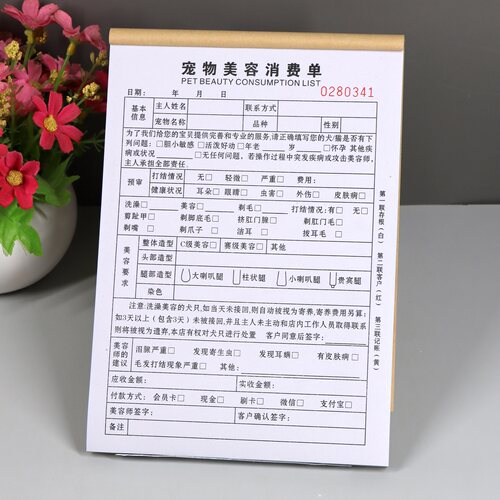 宠物美容消费单
PET BEAUTY CONSUMPTION LIST
日期： 年 月 日 0280341
基本信息 主人姓名 联系方式
宠物名称 品种 性别
为了我们给您的宝贝提供完善和专业的服务,请正确填写您的犬/猫是否有下
列问题：□胆小敏感 □活泼好动 □年老 岁/□怀孕 其他疾
病或状况 □无任何问题，若操作过程中突发疾病或攻击美容师，
主人承担全部责任.
预审 打结情况 无□ 轻微□ 严重□ 费用：
健康状况 耳朵□ 眼睛□ 虫害□ 外伤□ 皮肤病□
洗澡□ 美容□ 剃毛□ 打结情况:有□ 无□
剪趾甲□ 剃脚底毛□ 挤肛门腺□ 剃肛门毛□
剃嘴□ 剃爪子□ 洁耳□ 拔耳毛□
美容要求 整体造型 C级美容□ 赛级美容□ 其他
头部造型
腿部造型 大喇叭腿 柱状腿 小喇叭腿 贵宾腿
染色
注意:洗澡美容的犬只,如当天未接回,则自动被视为寄养,寄养费用另算;
如3天以上（包含3天）未被接回,并且主人未主动和店内工作人员取得联系
则将被视为遗弃,本店有权对犬只进行处置 客户同意后签字:
美容师的建议 泪腺严重□ 发现寄生虫□ 发现耳螨□ 有皮肤病□
毛发打结现象严重□ 其他:
应收金额: 实收金额:
付款方式: 会员卡□ 现金□ 刷卡□ 微信□ 支付宝□
美容师签字: 客户确认签字:
备注
第一联存根（白） 第二联客户（红） 第三联记账（黄）